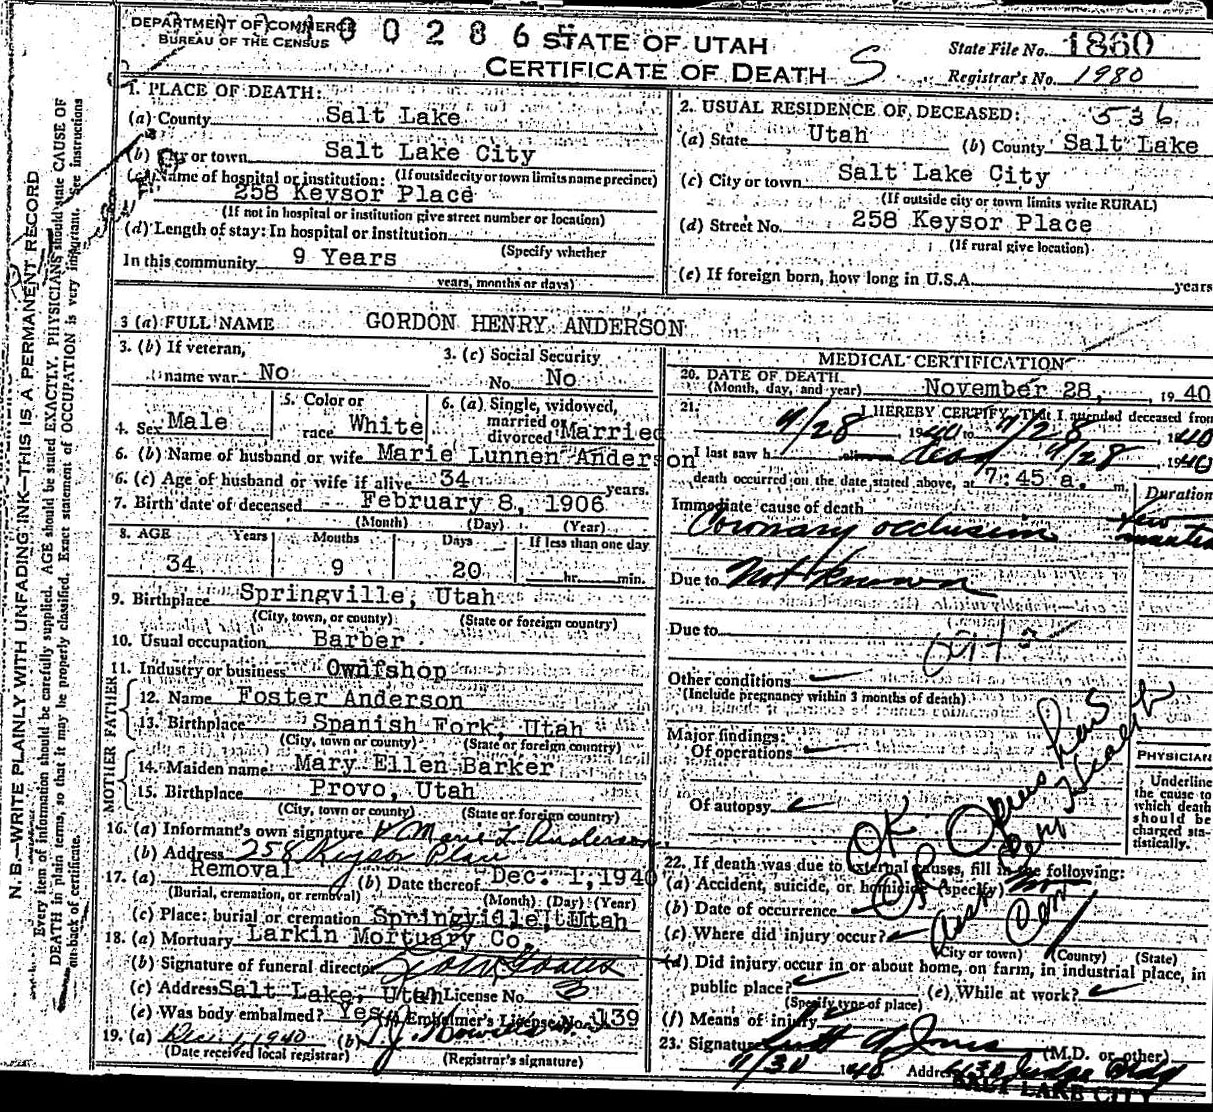 DEPARTMENT OF COMMERCE
BUREAU OF THE CENSUS
0 0 2 8 6
STATE OF UTAH
CERTIFICATE OF DEATH S
State File No. 1860
Registrar's No. 1980
1. PLACE OF DEATH:
(a) County Salt Lake
(b) City or town Salt Lake City
(If outside city or town limits name precinct)
(c) Name of hospital or institution:
258 Keysor Place
(If not in hospital or institution give street number or location)
(d) Length of stay: In hospital or institution
(Specify whether
In this community 9 Years
years, months or days)
2. USUAL RESIDENCE OF DECEASED: 536
(a) State Utah (b) County Salt Lake
(c) City or town Salt Lake City
(If outside city or town limits write RURAL)
(d) Street No. 258 Keysor Place
(If rural give location)
(e) If foreign born, how long in U.S.A. years
3 (a) FULL NAME GORDON HENRY ANDERSON
3. (b) If veteran, name war No
3. (c) Social Security No. No
4. Sex Male
5. Color or race White
6. (a) Single, widowed, married or divorced Married
6. (b) Name of husband or wife Marie Lunnen Anderson
6. (c) Age of husband or wife if alive 34 years.
7. Birth date of deceased February 8, 1906
(Month) (Day) (Year)
8. AGE Years Months Days If less than one day
34 9 20 hr. min.
9. Birthplace Springville, Utah
(City, town, or county) (State or foreign country)
10. Usual occupation Barber
11. Industry or business Own shop
FATHER
12. Name Foster Anderson
13. Birthplace Spanish Fork, Utah
(City, town or county) (State or foreign country)
MOTHER
14. Maiden name Mary Ellen Barker
15. Birthplace Provo, Utah
(City, town or county) (State or foreign country)
16. (a) Informant's own signature Marie L. Anderson
(b) Address 258 Keysor Place
17. (a) Removal (b) Date thereof Dec. 1, 1940
(Burial, cremation, or removal) (Month) (Day) (Year)
(c) Place: burial or cremation Springville, Utah
18. (a) Mortuary Larkin Mortuary Co.
(b) Signature of funeral director
(c) Address Salt Lake, Utah License No. 3
(e) Was body embalmed? Yes (f) Embalmer's License No. 139
19. (a) Dec. 1, 1940 (b)
(Date received local registrar) (Registrar's signature)
MEDICAL CERTIFICATION
20. DATE OF DEATH
(Month, day, and year) November 28, 1940
21. I HEREBY CERTIFY, That I attended deceased from
11/28, 1940 to 11/28, 1940
I last saw h alive dead 11/28, 1940
death occurred on the date stated above, at 7:45 a. m.
Duration
Immediate cause of death
Coronary occlusion few minutes
Due to Not known
Due to
Other conditions
(Include pregnancy within 3 months of death)
Major findings:
Of operations
Of autopsy
PHYSICIAN
Underline the cause to which death should be charged statistically.
OK
22. If death was due to external causes, fill in the following:
(a) Accident, suicide, or homicide (specify)
(b) Date of occurrence
(c) Where did injury occur?
(City or town) (County) (State)
(d) Did injury occur in or about home, on farm, in industrial place, in
public place? (e) While at work?
(Specify type of place)
(f) Means of injury
23. Signature Jones
(M.D. or other)
11/30 1940 Address 430 Judge Bldg
SALT LAKE CITY
N. B.—WRITE PLAINLY WITH UNFADING INK—THIS IS A PERMANENT RECORD
Every item of information should be carefully supplied. AGE should be stated EXACTLY. PHYSICIANS should state CAUSE OF
DEATH in plain terms, so that it may be properly classified. Exact statement of OCCUPATION is very important. See instructions
on back of certificate.